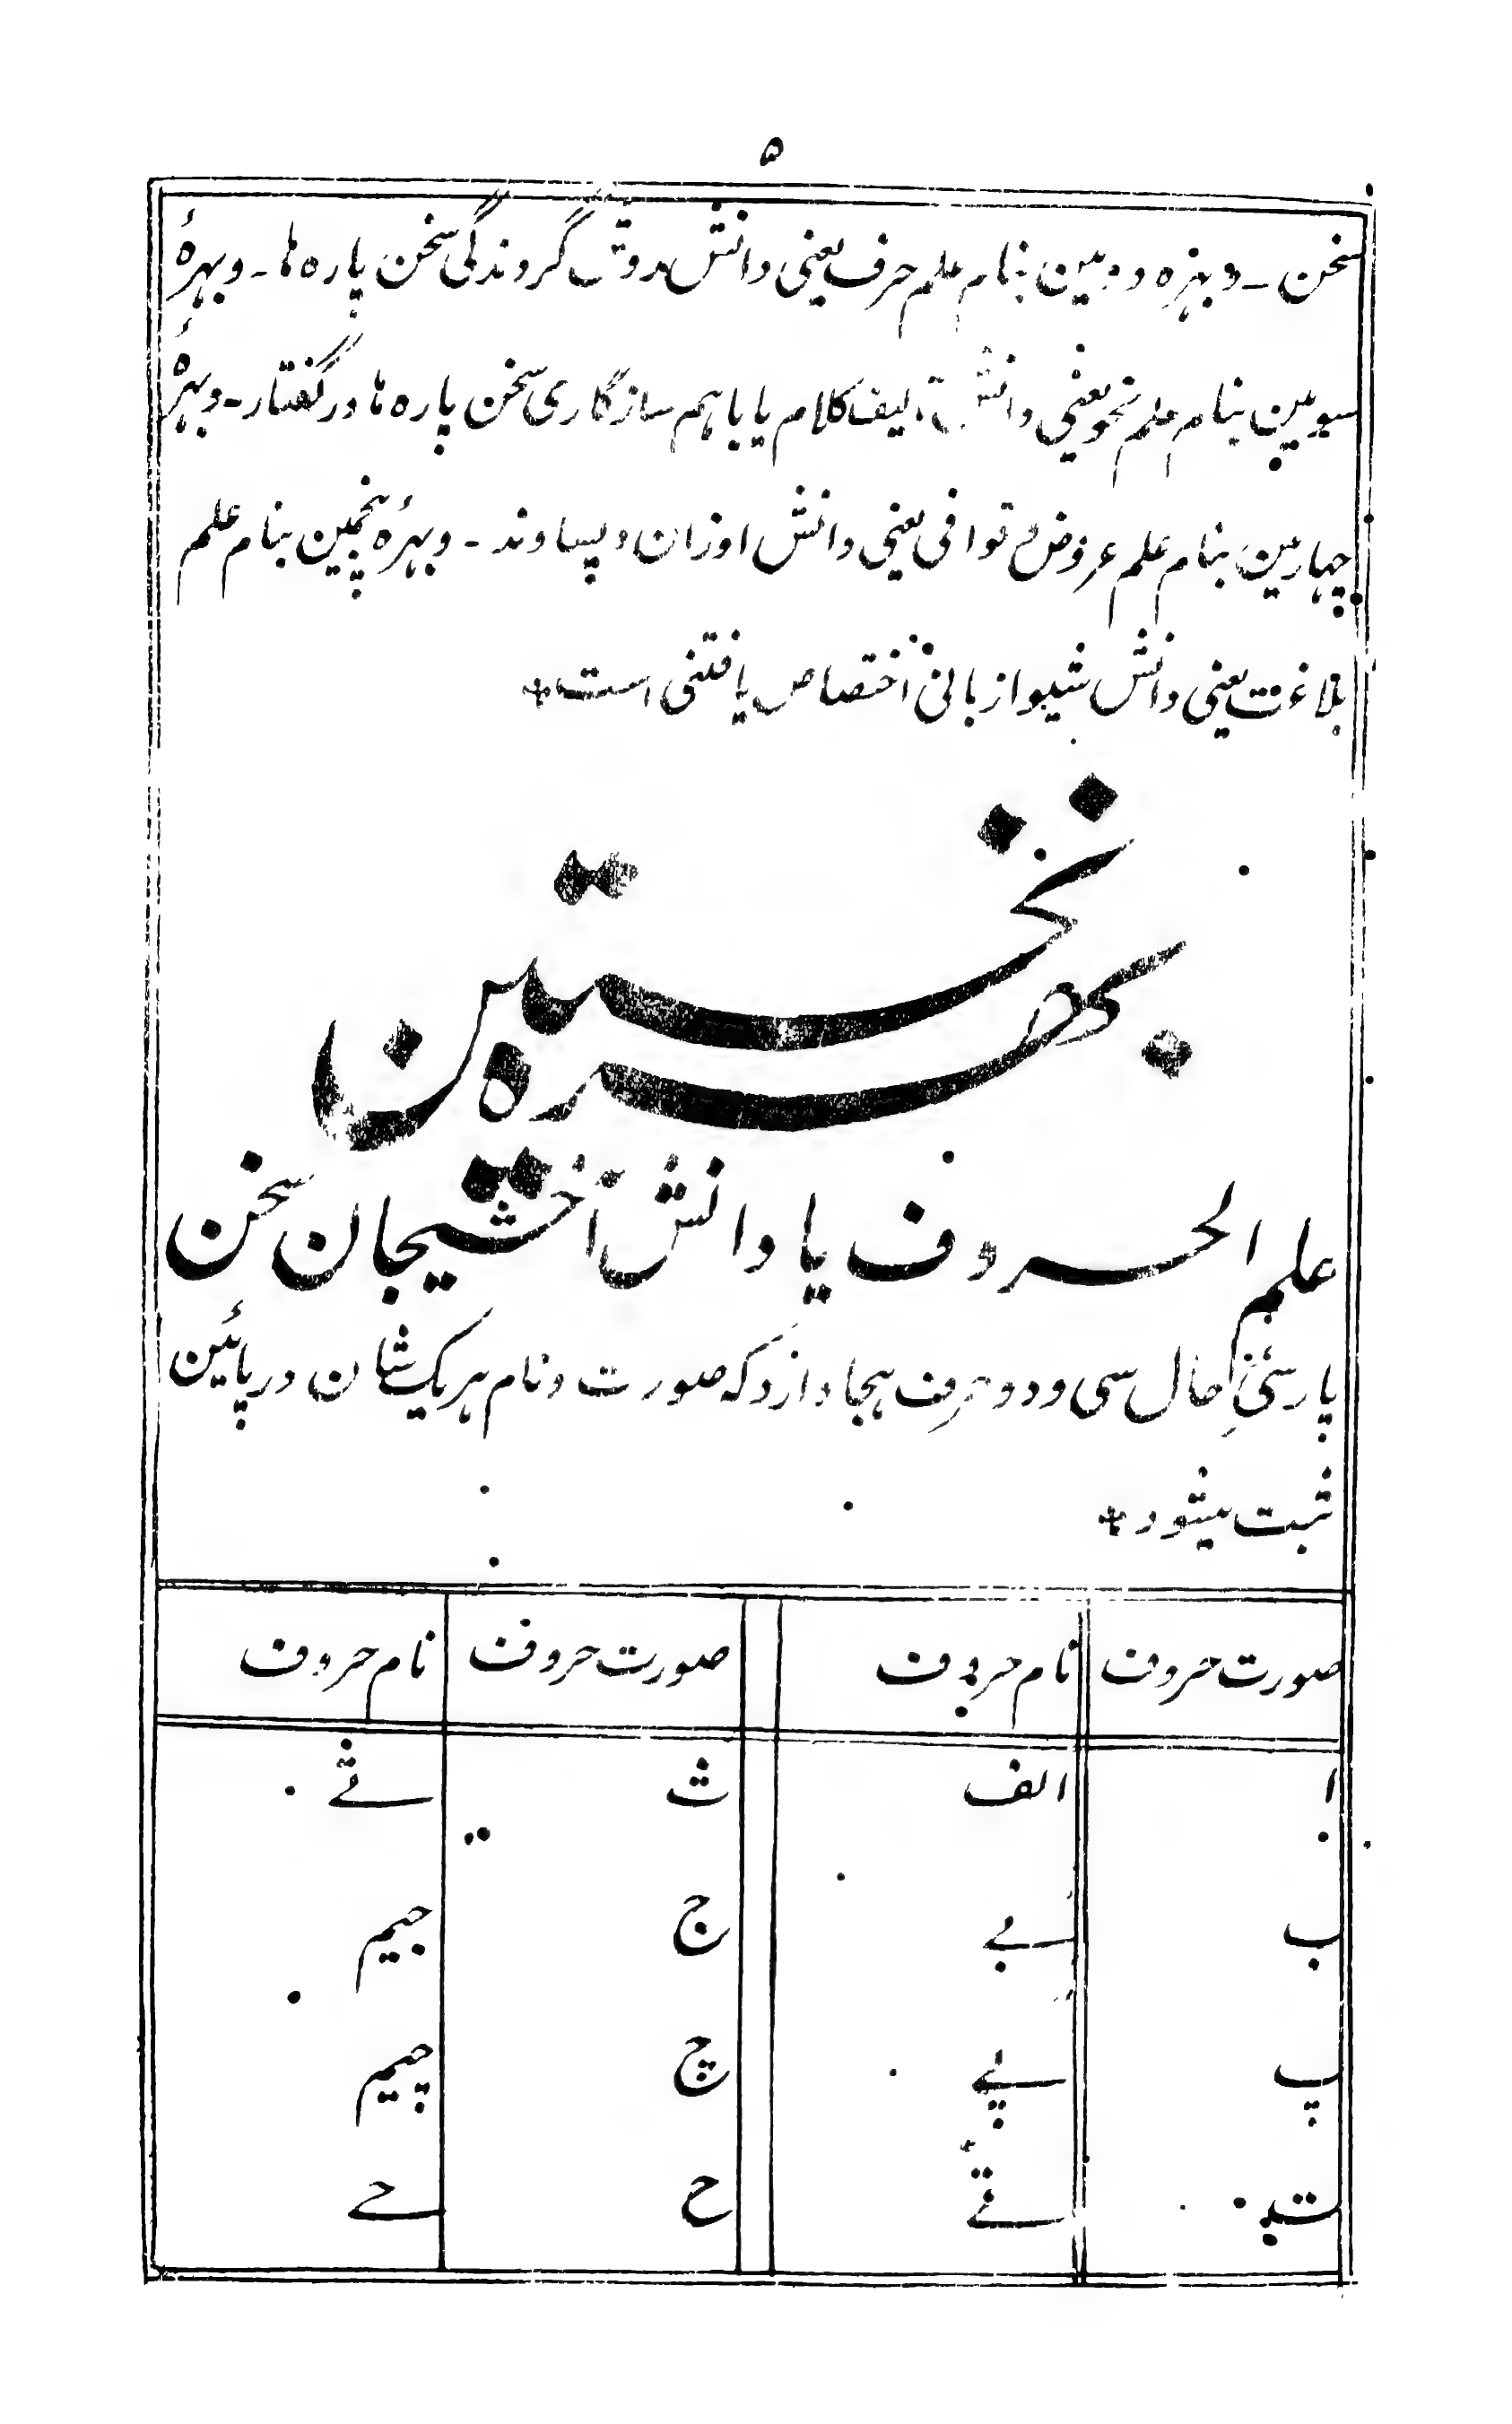 ۵
سخن ـ و بهره دومین بنام علم صرف یعنی دانش روش گروندگی سخن پاره ها ـ و بهرهٔ
سیومین بنام علم نحو یعنی دانش تالیف کلام یا باهم سازگاری سخن پاره ها در گفتار ـ و بهرهٔ
چهارمین بنام علم عروض و قوافی یعنی دانش اوزان و پساوند ـ و بهرهٔ پنجمین بنام علم
بلاغت یعنی دانش شیوا زبانی اختصاص یافتنی است
بهره نخستین
علم الحروف یا دانش آخشیجان سخن
پارسیٔ حال سی و دو حرف هجا دارد که صورت و نام هر یک شان در پائین
ثبت میشود
صورت حروف نام حروف صورت حروف نام حروف
ا الف ث ثے
ب بے ج جیم
پ پے چ چیم
ت تے ح حے